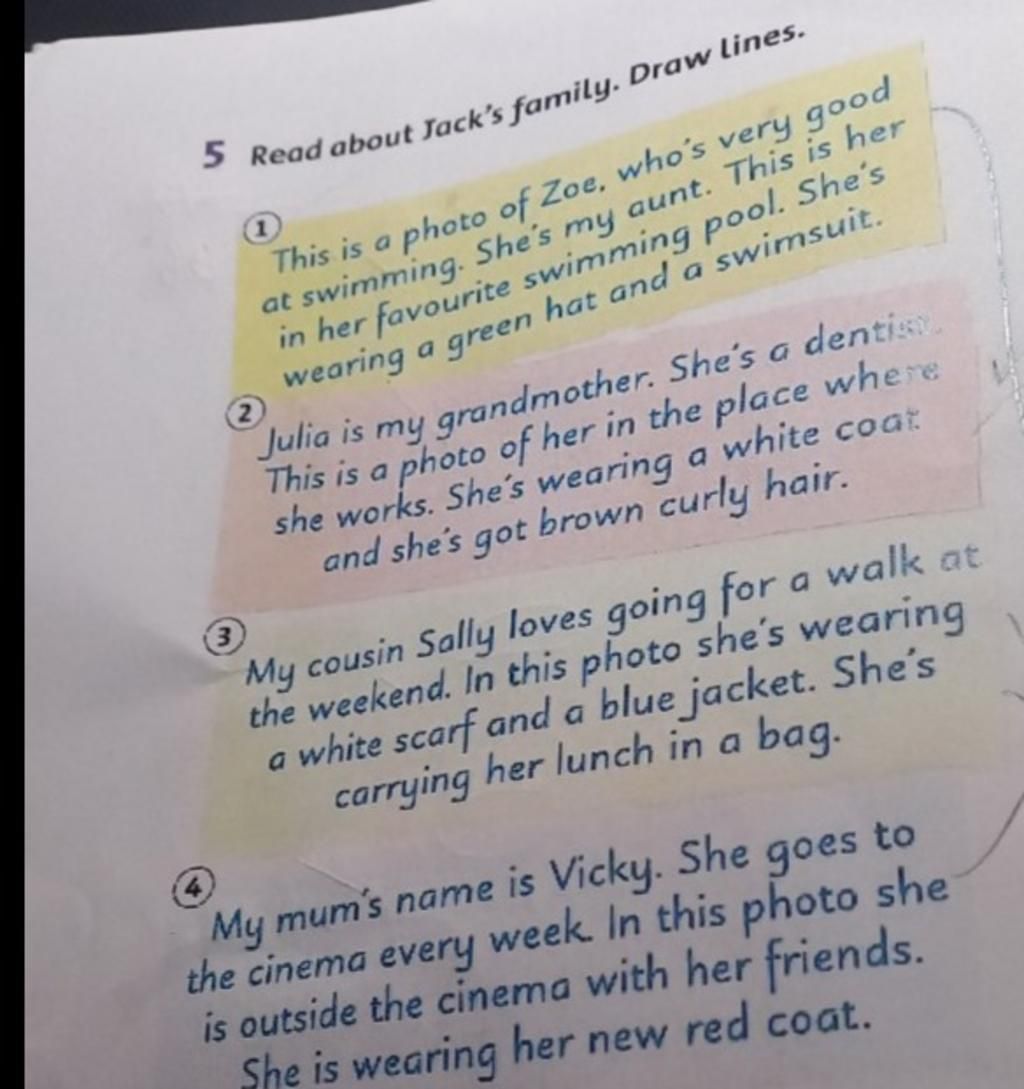 5 Read about Jack's family. Draw lines.
1
This is a photo of Zoe, who's very good
at swimming. She's my aunt. This is her
in her favourite swimming pool. She's
wearing a green hat and a swimsuit.
2
Julia is my grandmother. She's a dentist.
This is a photo of her in the place where
she works. She's wearing a white coat
and she's got brown curly hair.
3
My cousin Sally loves going for a walk at
the weekend. In this photo she's wearing
a white scarf and a blue jacket. She's
carrying her lunch in a bag.
4
My mum's name is Vicky. She goes to
the cinema every week. In this photo she
is outside the cinema with her friends.
She is wearing her new red coat.